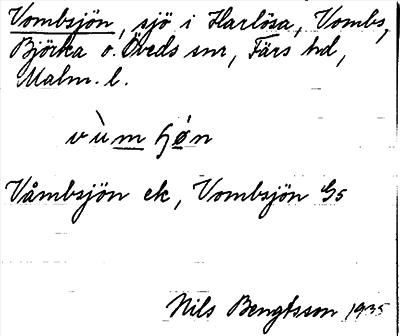 Vombsjön, sjö i Harlösa, Vombs,
Björka o. Öveds snr, Färs hd,
Malm. l.
vùm ɧøn
Våmbsjön ek, Vombsjön
Nils Bengtsson 1935